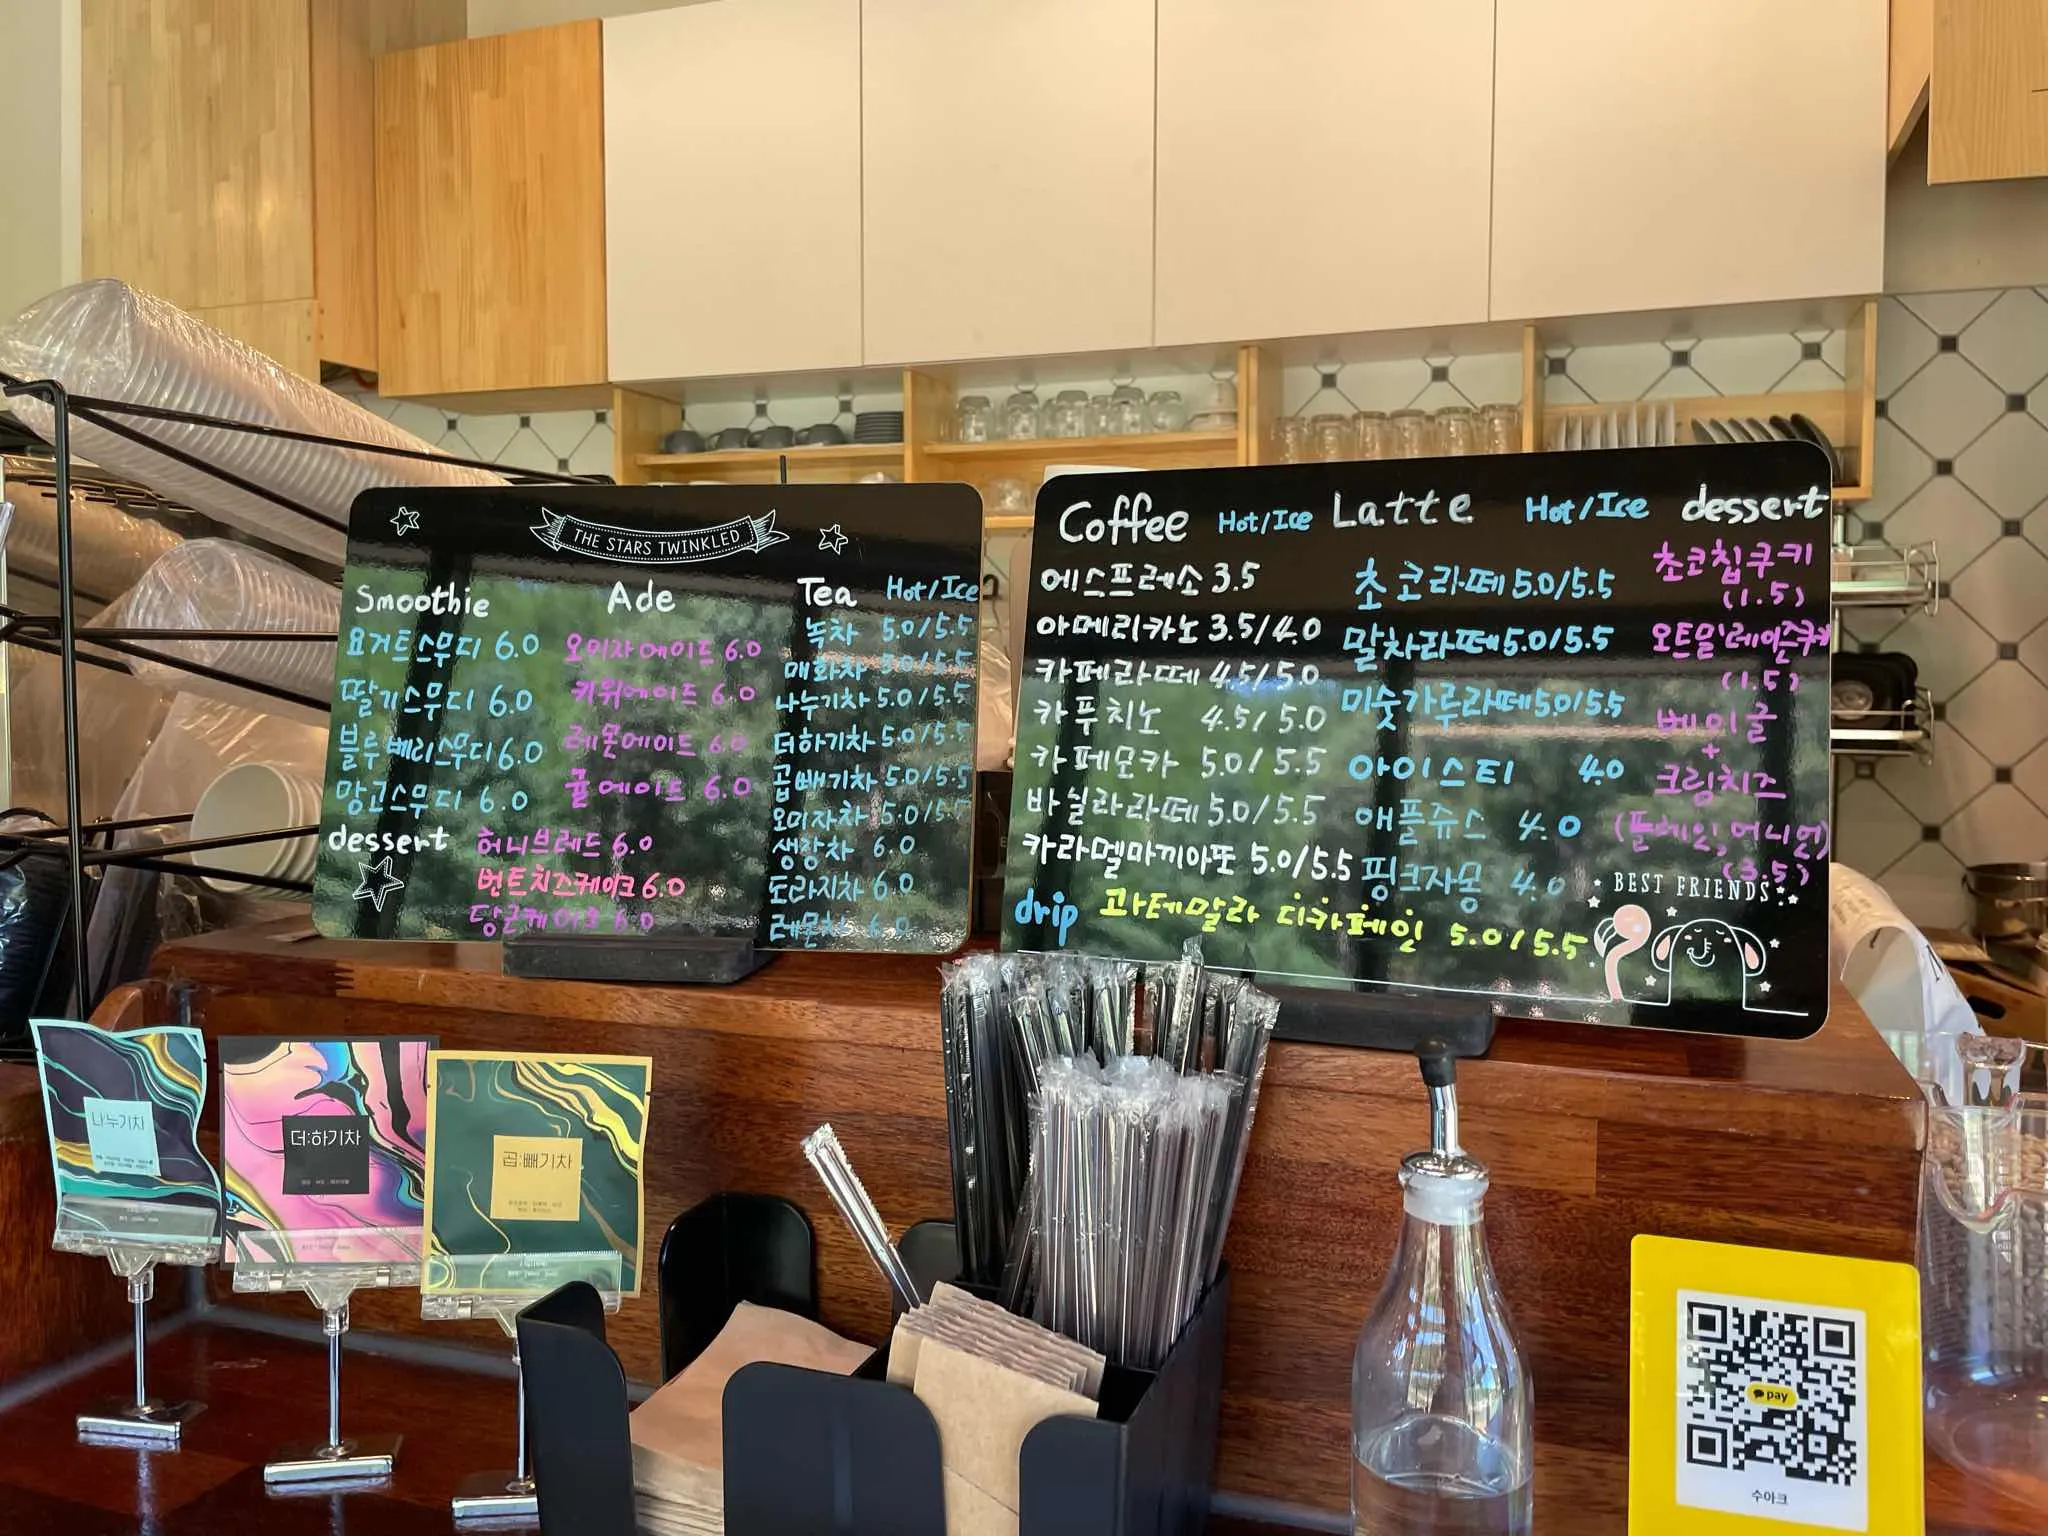 THE STARS TWINKLED
Smoothie
요거트스무디 6.0
딸기스무디 6.0
블루베리스무디 6.0
망고스무디 6.0
Ade
오미자에이드 6.0
키위에이드 6.0
레몬에이드 6.0
풀에이드 6.0
Tea Hot/Ice
녹차 5.0/5.5
매화차 5.0/5.5
나누기차 5.0/5.5
더하기차 5.0/5.5
곱빼기차 5.0/5.5
오미자차 5.0/5.5
생강차 6.0
도라지차 6.0
레몬차 6.0
dessert
허니브레드 6.0
번트치즈케이크 6.0
당근케이크 6.0
Coffee Hot/Ice
에스프레소 3.5
아메리카노 3.5/4.0
카페라떼 4.5/5.0
카푸치노 4.5/5.0
카페모카 5.0/5.5
바닐라라떼 5.0/5.5
카라멜마끼아또 5.0/5.5
drip 과테말라 디카페인 5.0/5.5
Latte Hot/Ice
초코라떼 5.0/5.5
말차라떼 5.0/5.5
미숫가루라떼 5.0/5.5
아이스티 4.0
애플쥬스 4.0
핑크자몽 4.0
dessert
초코칩쿠키
(1.5)
오트밀레이즌쿠키
(1.5)
베이글
+
크림치즈
(플레인, 어니언)
(3.5)
BEST FRIENDS
나누기차
더:하기차
곱:빼기차
pay
수아크